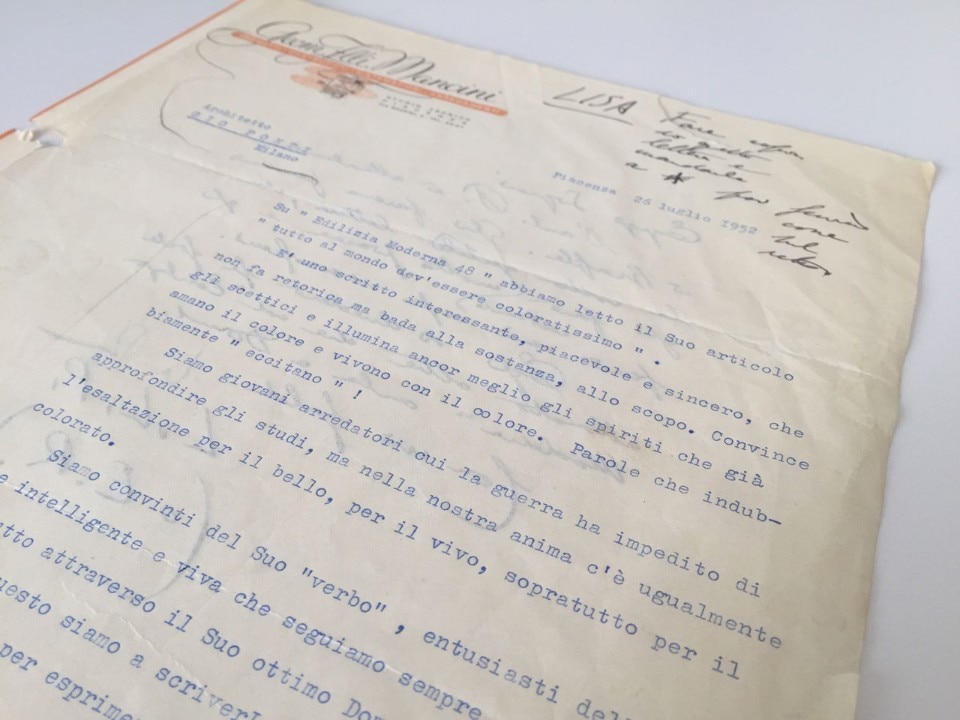 F.lli Mancini
LISA
Fare copia
di questo
lettera e
mandarla
a
Architetto
GIO PONTI
Milano
Piacenza 26 luglio 1952
Su " Edilizia Moderna 48 " abbiamo letto il Suo articolo
" tutto al mondo dev'essere coloratissimo ".
E' uno scritto interessante, piacevole e sincero, che
non fa retorica ma bada alla sostanza, allo scopo. Convince
gli scettici e illumina ancor meglio gli spiriti che già
amano il colore e vivono con il colore. Parole che indub-
biamente " eccitano " !
Siamo giovani arredatori cui la guerra ha impedito di
approfondire gli studi, ma nella nostra anima c'è ugualmente
l'esaltazione per il bello, per il vivo, sopratutto per il
colorato.
Siamo convinti del Suo "verbo", entusiasti del
e intelligente e viva che seguiamo sempre
tto attraverso il Suo ottimo Dom
uesto siamo a scriverL
per esprime